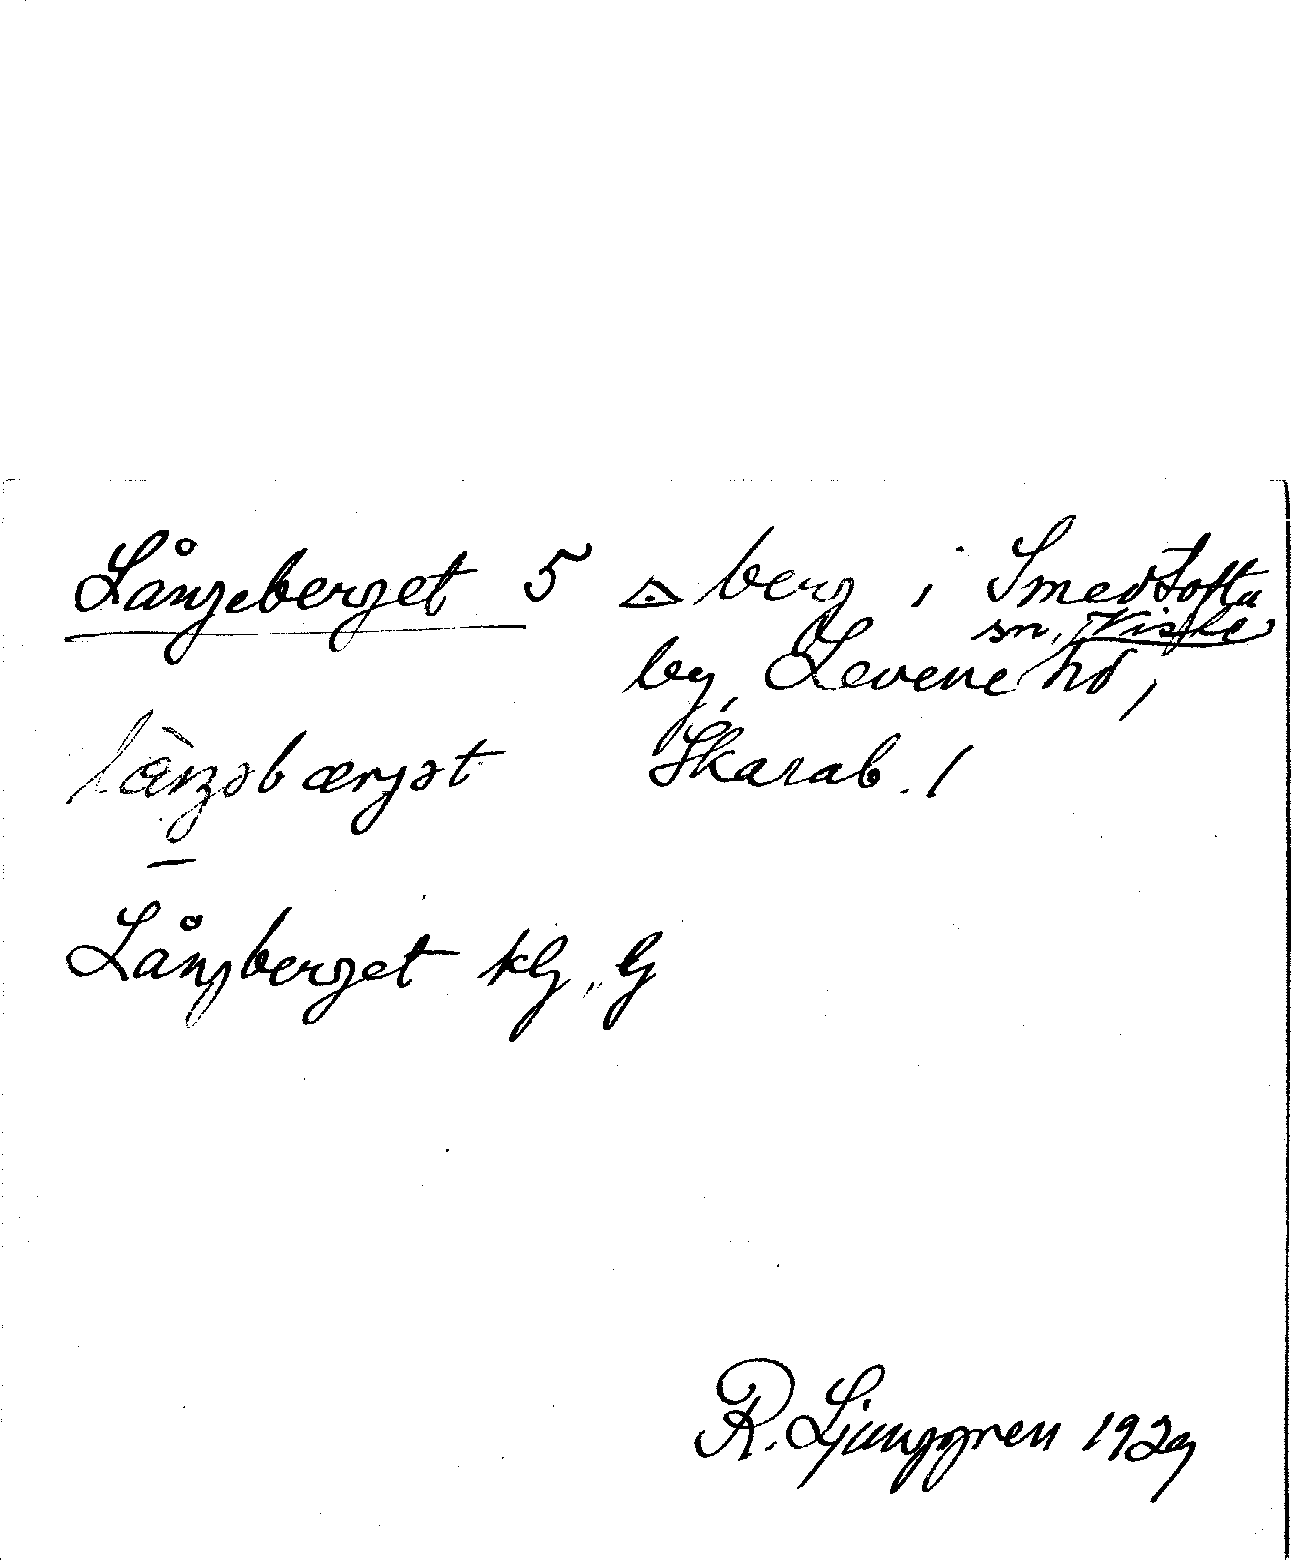 Långeberget 5 berg i Smedtofta
by, Levene sn, Viste hd,
læ̀ŋəbærjət Skarab. l
Långberget kG, G
R. Ljunggren 1929